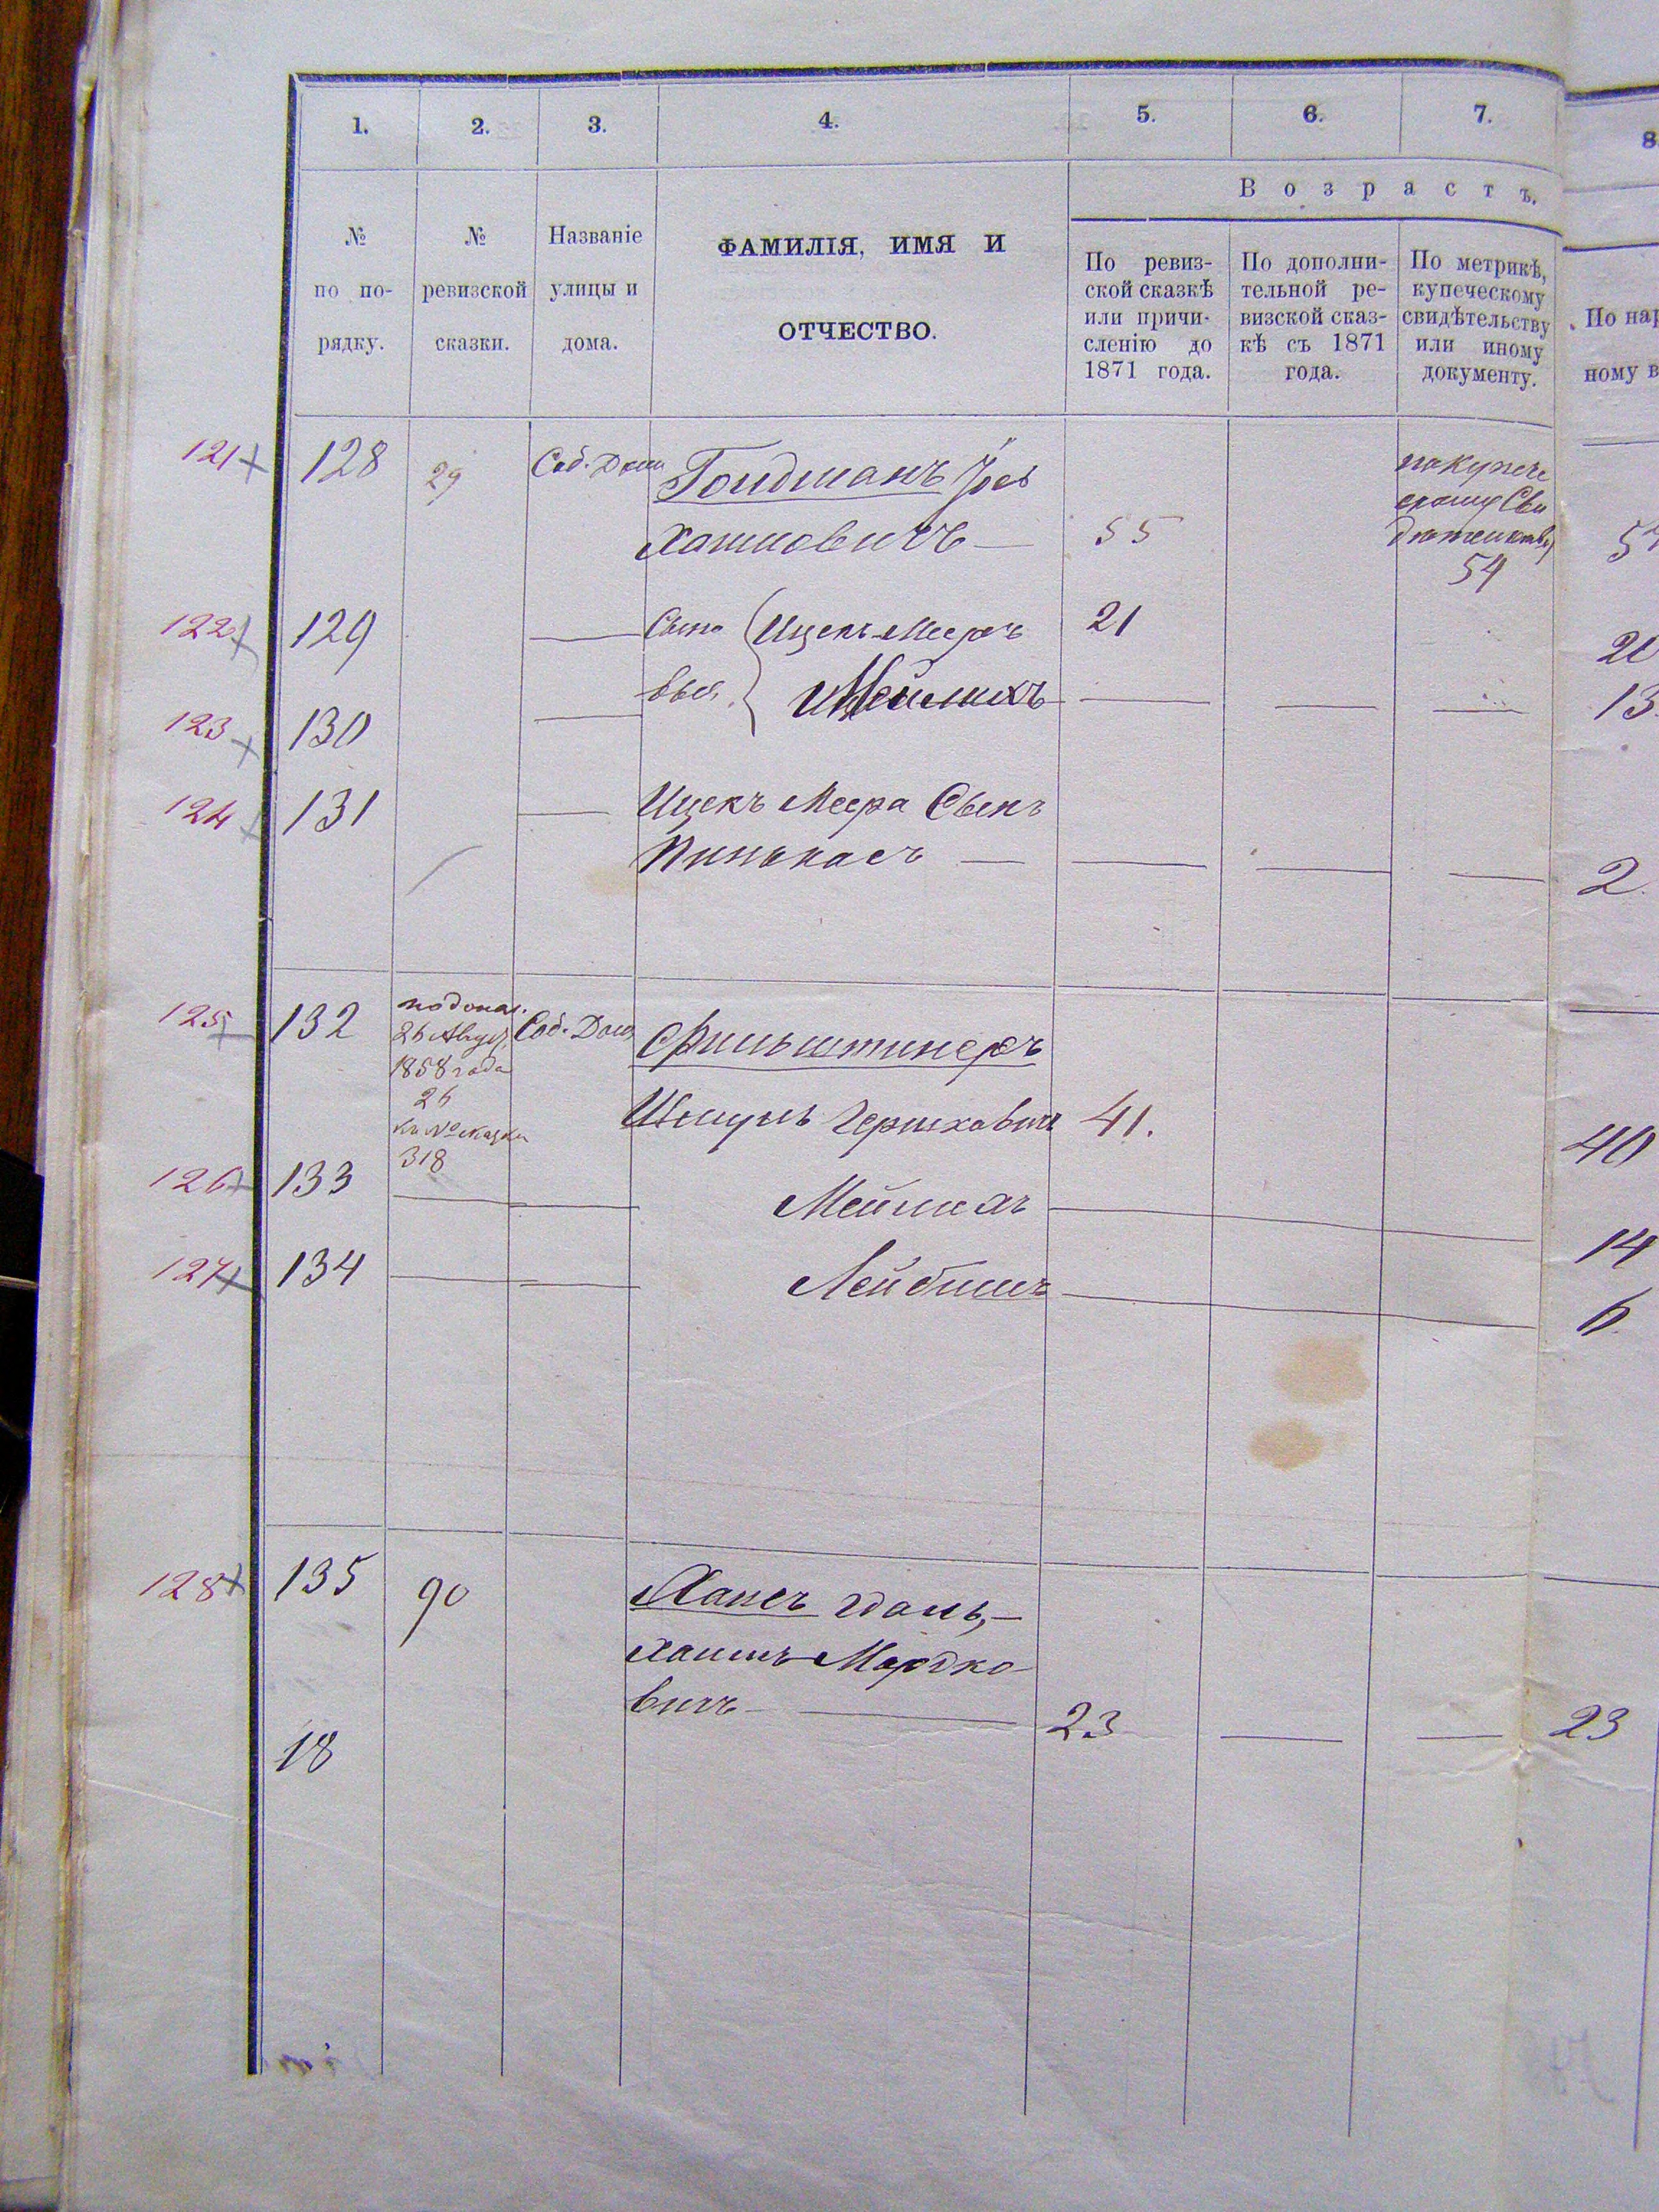 1. 2. 3. 4. 5. 6. 7. 8
Возрастъ.
№ по по-рядку.
№ ревизской сказки.
Названіе улицы и дома.
ФАМИЛІЯ, ИМЯ И
ОТЧЕСТВО.
По ревиз-
ской сказкѣ
или причи-
сленію до
1871 года.
По дополни-
тельной ре-
визской сказ-
кѣ съ 1871
года.
По метрикѣ,
купеческому
свидѣтельству
или иному
документу.
По нар
ному в
121 128 29 Соб. Дом Гольдманъ
Хаимовичъ 55
по купече
скому Сви
дѣтельству
54
122 129 Сыно Ицекъ Мееръ 21 20
123 130 вья Мейлихъ 13
124 131 Ицекъ Меера Сынъ
Пинькасъ 2
125 132 Соб. Дом Фильштинеръ
26 Август
1858 года
26
къ № сказки
318
Шмуль Гершковичъ 41. 40
126 133 Мейлихъ 14
127 134 Лейбишъ 6
128 135 90
Хаимъ Мордко
вичъ 23 23
18